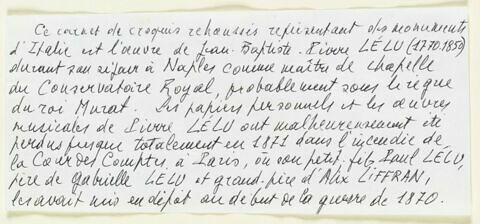 Ce carnet de croquis rehaussés représentant des monuments
d'Italie est l'œuvre de Jean-Baptiste-Pierre LÉLU (1770-1850)
durant son séjour à Naples comme maître de chapelle
du Conservatoire Royal, probablement sous le règne
du roi Murat. Les papiers personnels et les œuvres
musicales de Pierre LÉLU ont malheureusement été
perdus presque totalement en 1871 dans l'incendie de
la Cour des Comptes, à Paris, où son petit-fils Paul LÉLU,
père de Gabrielle LÉLU et grand-père d'Alix LIFFRAN,
les avait mis en dépôt au début de la guerre de 1870.